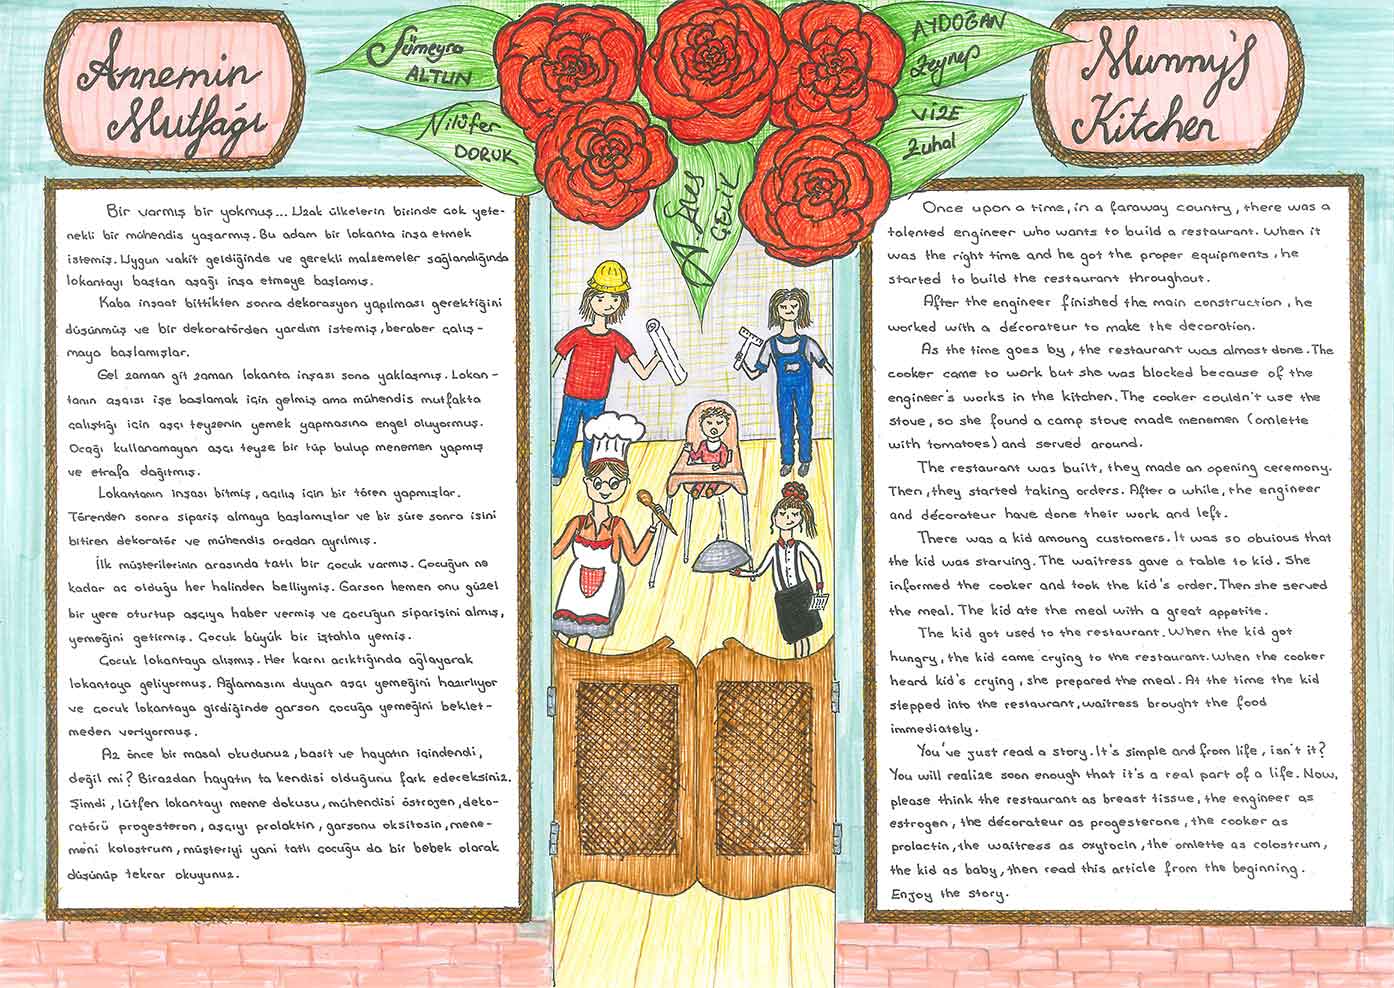 Annemin
Mutfağı
Sümeyra
ALTUN
Nilüfer
DORUK
ÇELİK
AYDOĞAN
Zeynep
VİZE
Zuhal
Munny's
Kitchen
Bir varmış bir yokmuş... Uzak ülkelerin birinde çok yete-
nekli bir mühendis yaşarmış. Bu adam bir lokanta inşa etmek
istemiş. Uygun vakit geldiğinde ve gerekli malzemeler sağlandığında
lokantayı baştan aşağı inşa etmeye başlamış.
Kaba inşaat bittikten sonra dekorasyon yapılması gerektiğini
düşünmüş ve bir dekoratörden yardım istemiş, beraber çalış-
maya başlamışlar.
Gel zaman git zaman lokanta inşası sona yaklaşmış. Lokan-
tanın aşçısı işe başlamak için gelmiş ama mühendis mutfakta
çalıştığı için aşçı teyzenin yemek yapmasına engel oluyormuş.
Ocağı kullanamayan aşçı teyze bir tüp bulup menemen yapmış
ve etrafa dağıtmış.
Lokantanın inşası bitmiş, açılış için bir tören yapmışlar.
Törenden sonra sipariş almaya başlamışlar ve bir süre sonra işini
bitiren dekoratör ve mühendis oradan ayrılmış.
İlk müşterilerinin arasında tatlı bir çocuk varmış. Çocuğun ne
kadar aç olduğu her halinden belliymiş. Garson hemen onu güzel
bir yere oturtup aşçıya haber vermiş ve çocuğun siparişini almış,
yemeğini getirmiş. Çocuk büyük bir iştahla yemiş.
Çocuk lokantaya alışmış. Her karnı acıktığında ağlayarak
lokantaya geliyormuş. Ağlamasını duyan aşçı yemeğini hazırlıyor
ve çocuk lokantaya girdiğinde garson çocuğa yemeğini beklet-
meden veriyormuş.
Az önce bir masal okudunuz, basit ve hayatın içindendi,
değil mi? Birazdan hayatın ta kendisi olduğunu fark edeceksiniz.
Şimdi, lütfen lokantayı meme dokusu, mühendisi östrojen, deko-
ratörü progesteron, aşçıyı prolaktin, garsonu oksitosin, mene-
meni kolostrum, müşteriyi yani tatlı çocuğu da bir bebek olarak
düşünüp tekrar okuyunuz.
Once upon a time, in a faraway country, there was a
talented engineer who wants to build a restaurant. When it
was the right time and he got the proper equipments, he
started to build the restaurant throughout.
After the engineer finished the main construction, he
worked with a décorateur to make the decoration.
As the time goes by, the restaurant was almost done. The
cooker came to work but she was blocked because of the
engineer's works in the kitchen. The cooker couldn't use the
stove, so she found a camp stove made menemen (omlette
with tomatoes) and served around.
The restaurant was built, they made an opening ceremony.
Then, they started taking orders. After a while, the engineer
and décorateur have done their work and left.
There was a kid amoung customers. It was so obuious that
the kid was starving. The waitress gave a table to kid. She
informed the cooker and took the kid's order. Then she served
the meal. The kid ate the meal with a great appetite.
The kid got used to the restaurant. When the kid got
hungry, the kid came crying to the restaurant. When the cooker
heard kid's crying, she prepared the meal. At the time the kid
stepped into the restaurant, waitress brought the food
immediately.
You've just read a story. It's simple and from life, isn't it?
You will realize soon enough that it's a real part of a life. Now,
please think the restaurant as breast tissue, the engineer as
estrogen, the décorateur as progesterone, the cooker as
prolactin, the waitress as oxytocin, the omlette as colostrum,
the kid as baby, then read this article from the beginning.
Enjoy the story.